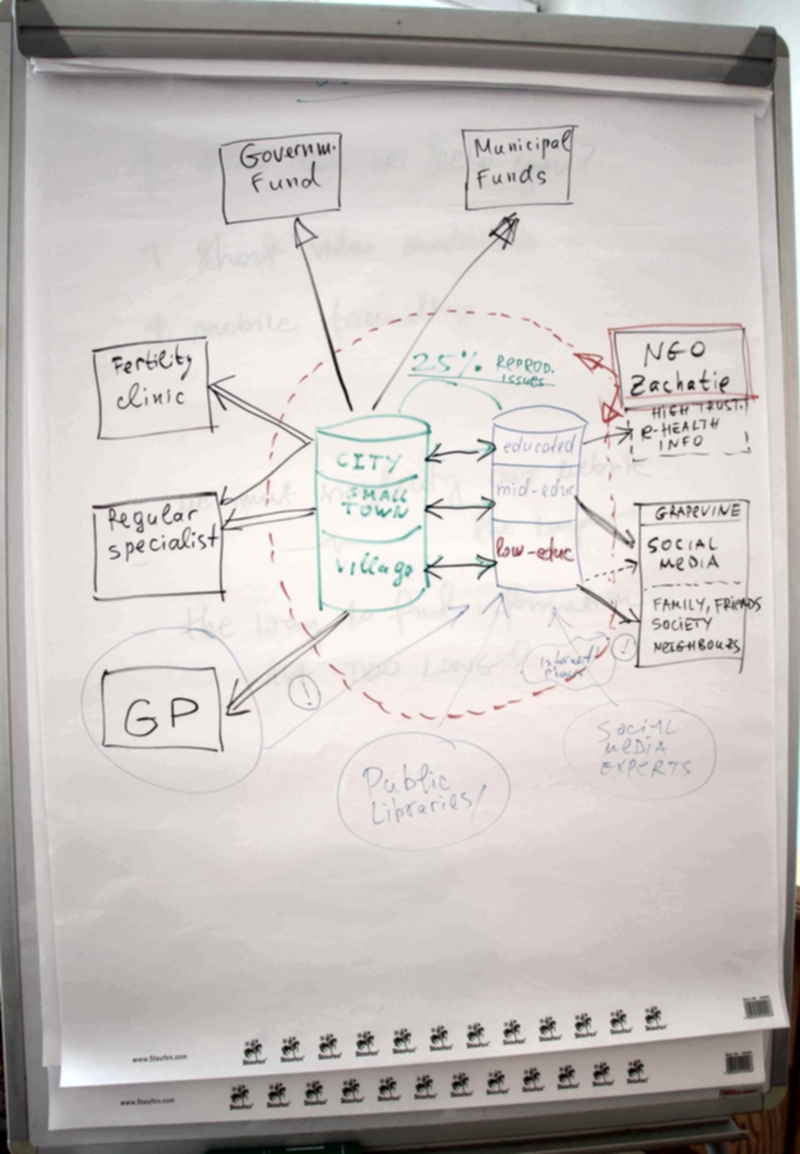 Governm.
Fund
Municipal
Funds
Fertility
clinic
25% REPROD.
ISSUES
NGO
Zachatie
HIGH TRUST.
e-HEALTH
INFO
CITY
SMALL
TOWN
village
educated
mid-educ
low-educ
Regular
specialist
GRAPEVINE
SOCIAL
MEDIA
FAMILY, FRIENDS
SOCIETY
NEIGHBOURS
GP
!
!
Internet
Public
Libraries
SOCIAL
MEDIA
EXPERTS
short video
mobile friendly
TOO LONG
www.Staufen.com
www.Staufen.com